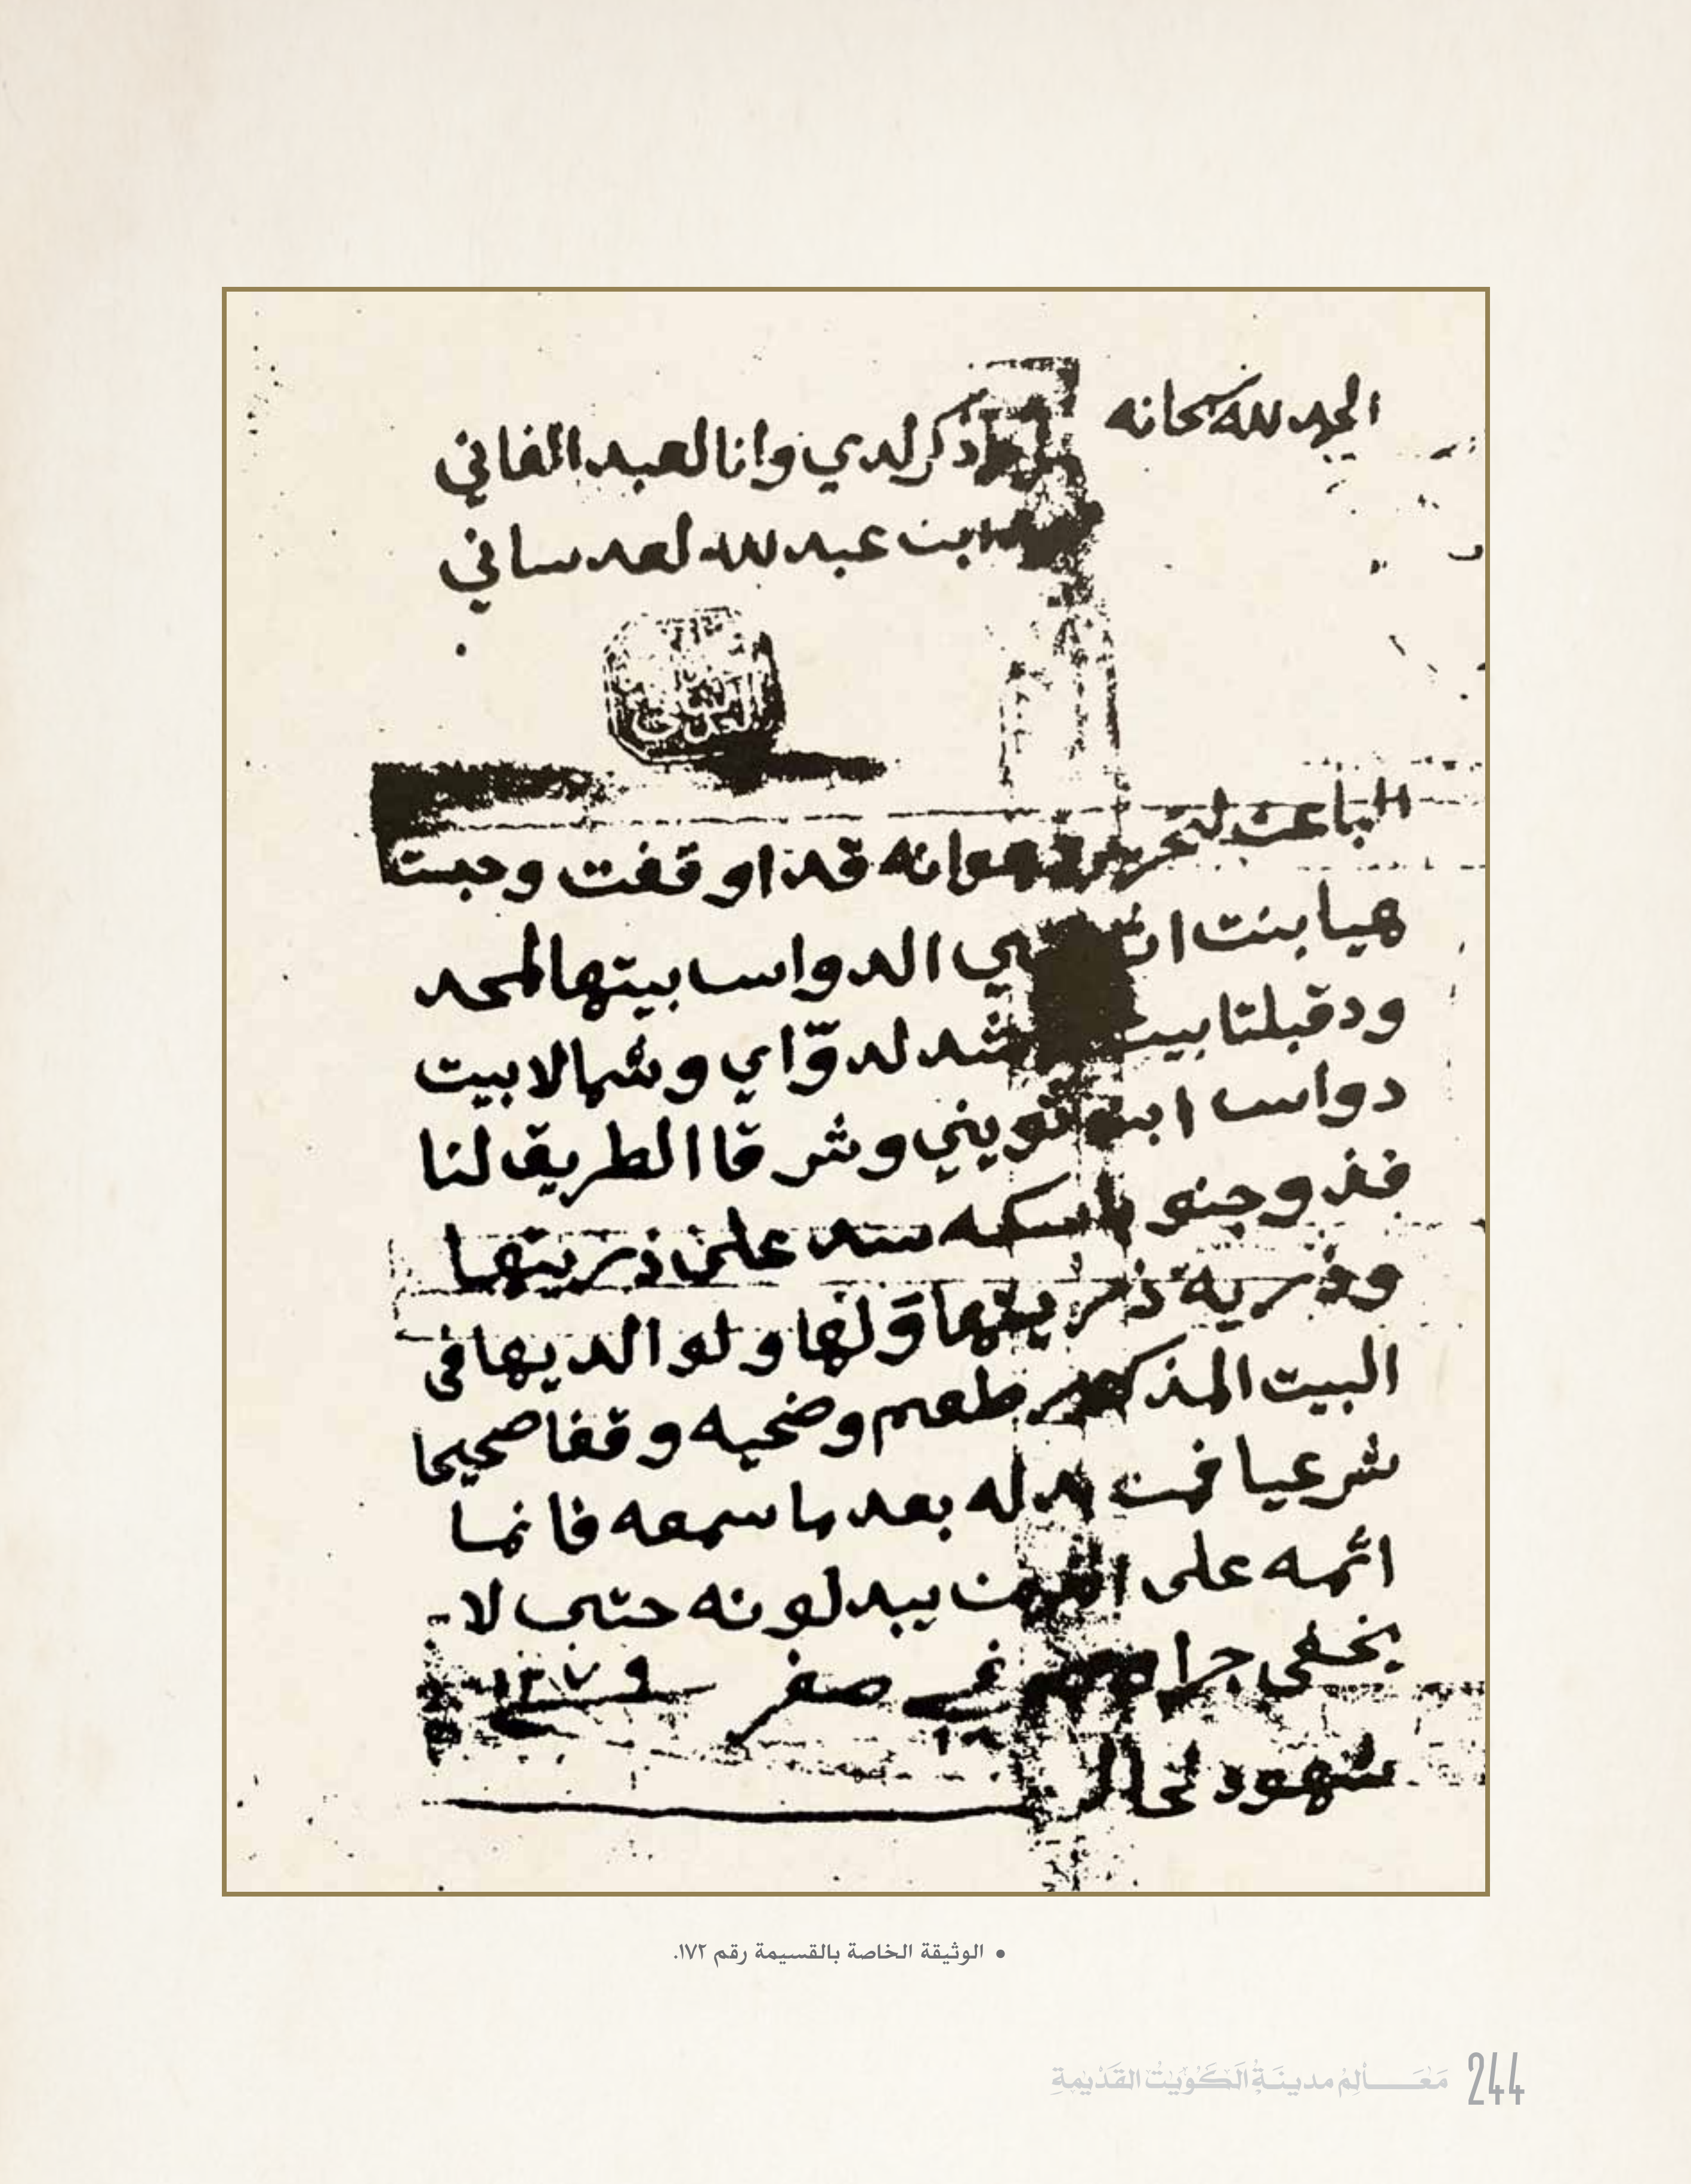 الحمد لله سبحانه
ذكر لدي وانا لعبد الفاني
ابن عبد لله لعد ساني
الباعث لتحرير هوانه قد اوقفت وحبست
هيا بنت الدواس بيتها لمحد
ود قبلتا بيت لدوّاي وشمالا بيت
دواس ابن ثويني وشرقا الطريق لنا
فذ وجنو باسكه سد على ذريتها
وذريه ذريتها وّلها ولو الديها في
البيت المذكور طعم وضحيه وقفا صحيحا
شرعيا فمن بدله بعد ما سمعه فانما
اثمه على يبدلونه حتى لا
يخفى جرا في صفر
شهود لحال
• الوثيقة الخاصة بالقسيمة رقم ١٧٢.
مَعَالِمُ مدينَةِ الكُوَيْتِ القَدْيمةِ 244